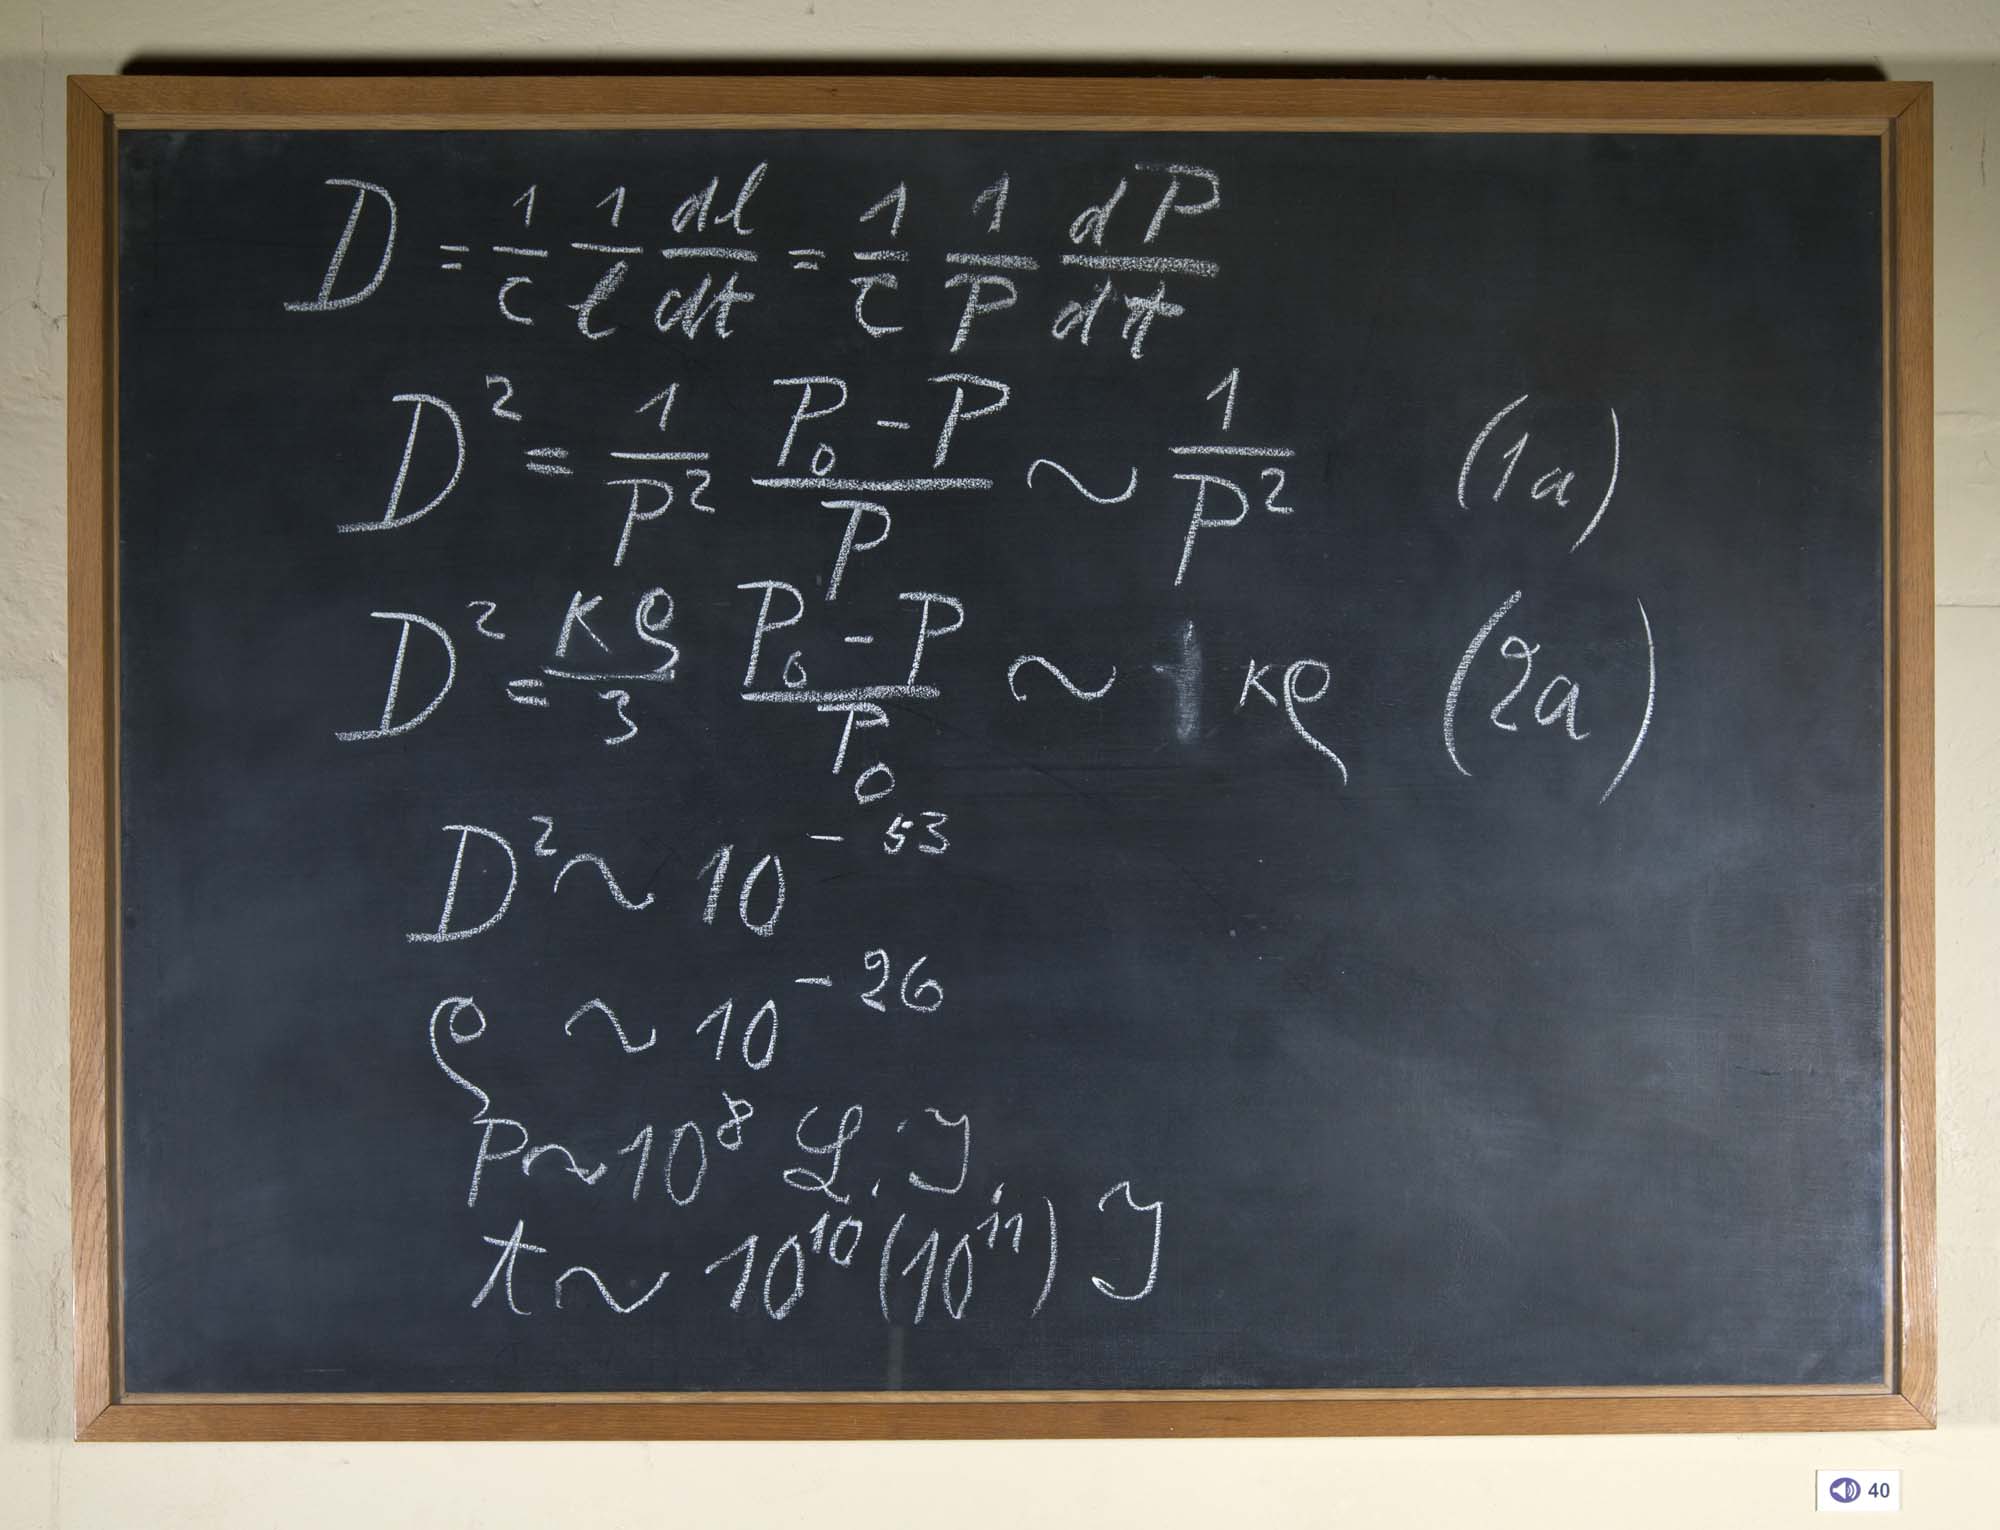 D = 1/c 1/l dl/dt = 1/c 1/P dP/dt
D² = 1/P² (P₀ - P)/P ~ 1/P² (1a)
D² = κρ/3 (P₀ - P)/P₀ ~ κρ (2a)
D² ~ 10⁻⁵³
ρ ~ 10⁻²⁶
P ~ 10⁸ L. J.
t ~ 10¹⁰ (10¹¹) J
40